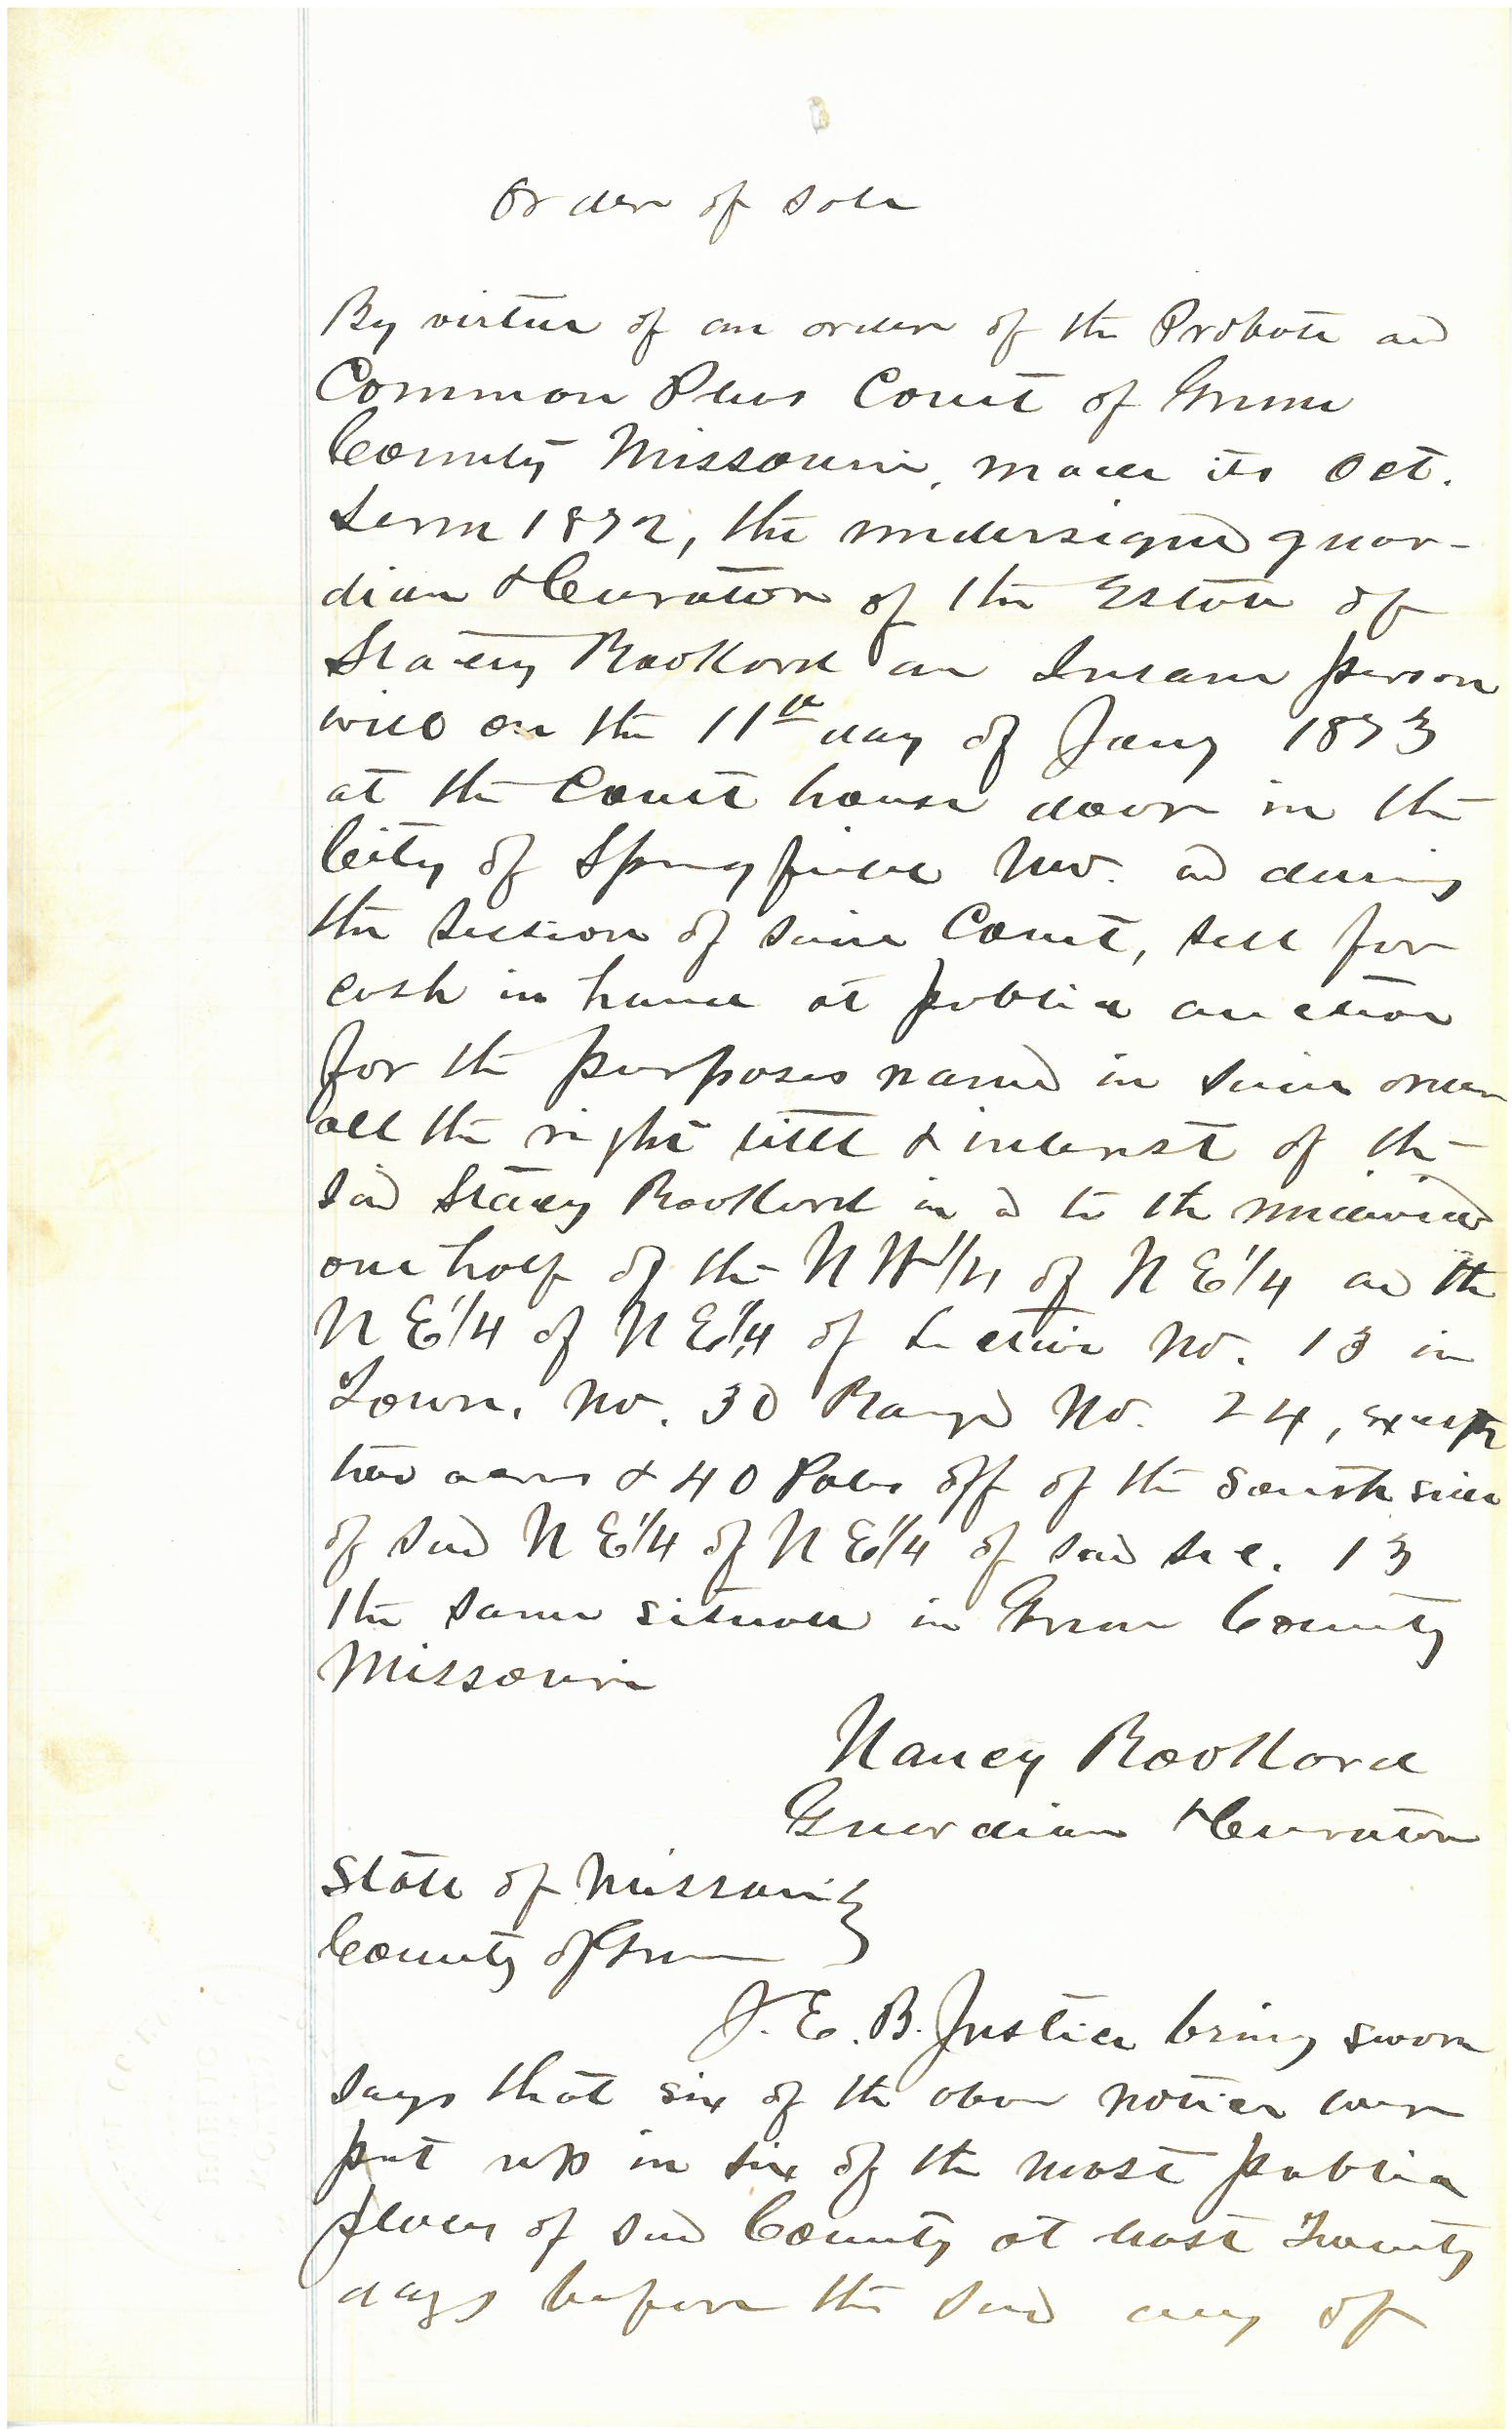 Order of Sale
By virtue of an order of the Probate and
Common Pleas Court of Greene
County Missouri, made its Oct.
Term 1872, the undersigned guar-
dian & Curator of the Estate of
Stacey an Insane person
will on the 11th day of Jany 1873
at the Court house door in the
City of Springfield Mo. and during
the session of said Court, sell for
cash in hand at public auction
for the purposes named in said order
all the right title & interest of the
said Stacey in & to the undivided
one half of the N W 1/4 of N E 1/4 and the
N E 1/4 of N E 1/4 of Section No. 13 in
Town. No. 30 Range No. 24, except
two acres & 40 Poles off of the South side
of said N E 1/4 of N E 1/4 of said Sec. 13
the same situate in Greene County
Missouri
Nancy
Guardian & Curator
State of Missouri }
County of Greene }
J. E. B. Justice being sworn
says that six of the above notices were
put up in six of the most public
places of said County at least Twenty
days before the said day of